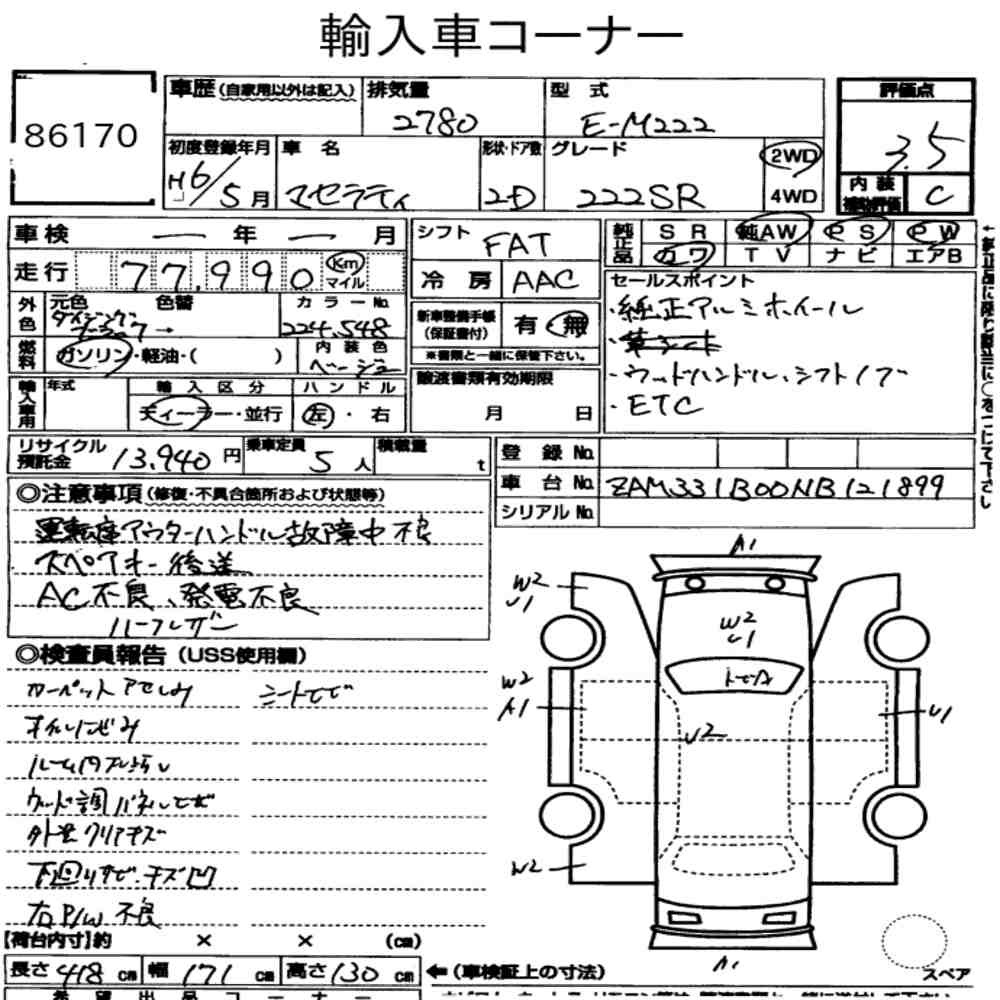 輸入車コーナー
86170
車歴 (自家用以外は記入) 排気量 型式 評価点
2780 E-M222 3.5
初度登録年月 車名 形状・ドア数 グレード 2WD
H6/5月 マセラティ 2D 222SR 4WD
内装補助評価 C
車検 ー 年 ー 月
シフト FAT
純正品 SR 純AW PS PW
カワ TV ナビ エアB
走行 77,990 Km マイル
冷房 AAC
セールスポイント
・純正アルミホイール
・ウッドハンドル、シフトノブ
・ETC
外色 元色 色替 カラーNo.
224.548
新車整備手帳(保証書付) 有・無
※書類と一緒に保管下さい。
燃料 ガソリン・軽油・( ) 内装色 ベージュ
輸入車用 年式 輸入区分 ハンドル
ディーラー・並行 左・右
譲渡書類有効期限
月 日
リサイクル預託金 13,940円 乗車定員 5人 積載量 t
登録No.
車台No. ZAM331B00NB121899
シリアルNo.
◎注意事項(修復・不具合箇所および状態等)
運転席アウターハンドル故障中不良
スペアキー後送
AC不良、発電不良
◎検査員報告(USS使用欄)
オイルにじみ
外装クリアキズ
下回りサビ・キズ凹
右P/W不良
A1
W2 U1
W2 U1
W2 A1
U1
U2
W2
A1
【荷台内寸】約 × × (cm)
長さ 418cm 幅 171cm 高さ 130cm ←(車検証上の寸法)
スペア
希望出品コーナー